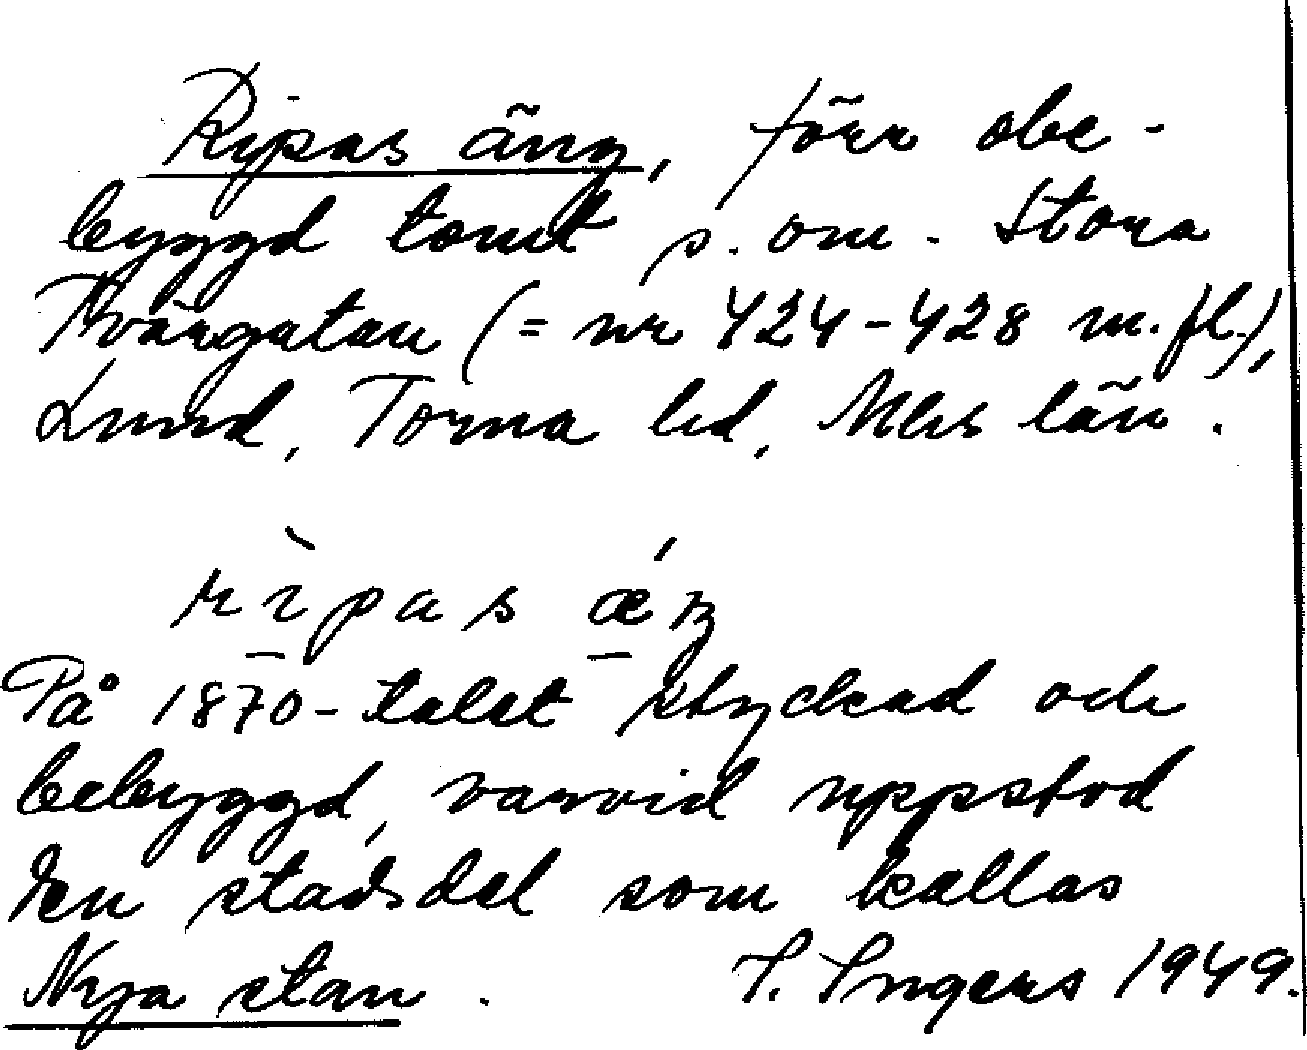 Ripas äng, förr obe-
byggd tomt s. om. Stora
Tvärgatan (= nr 424-428 m.fl.),
Lund, Torna hd, Mlhs län.
rìpas ǽŋ
På 1870-talet styckad och
bebyggd, varvid uppstod
den stadsdel som kallas
Nya stan. I. Ingers 1949.